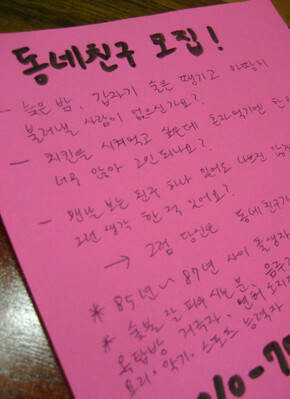 동네친구 모집!
- 늦은 밤, 갑자기 술은 땡기고 마땅히
불러낼 사람이 없으신가요?
- 치킨을 시켜먹고 싶은데 혼자먹기엔
너무 많아 고민되나요?
- 맨날 보는 친구 하나 있어도 나쁘진 않겠
그런 생각 한 적 있어요?
→ 그럼 당신은 동네친구가
* 85년~87년 사이 출생자
* 술불 잘 피우시는 분, 음주가
옥탑방 거주자, 면허 소지
요리·악기·스포츠 능력자
010-7